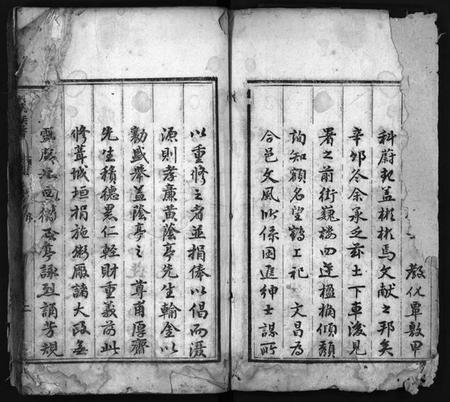 教化覃敷甲
科蔚起蓋彬彬焉文献之邦矣
辛卯冬余承乏茲土下車後見
署之前街巍楼四達楹桷傾頹
詢知額名望鶴工祀 文昌為
合邑文風所係因進紳士謀所
以重修之者並捐俸以倡而濬
源則孝廉黃蔭亭先生輸金以
勷盛舉蓋蔭亭之 尊甫厚齋
先生積德累仁輕財重義前此
修葺城垣捐施粥廠諸大政無
亭詠烈誦芳規